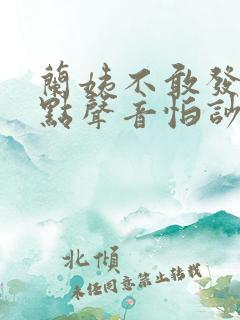 蘭姨不敢發
點聲音怕訬
北傾
未任同意禁止转载